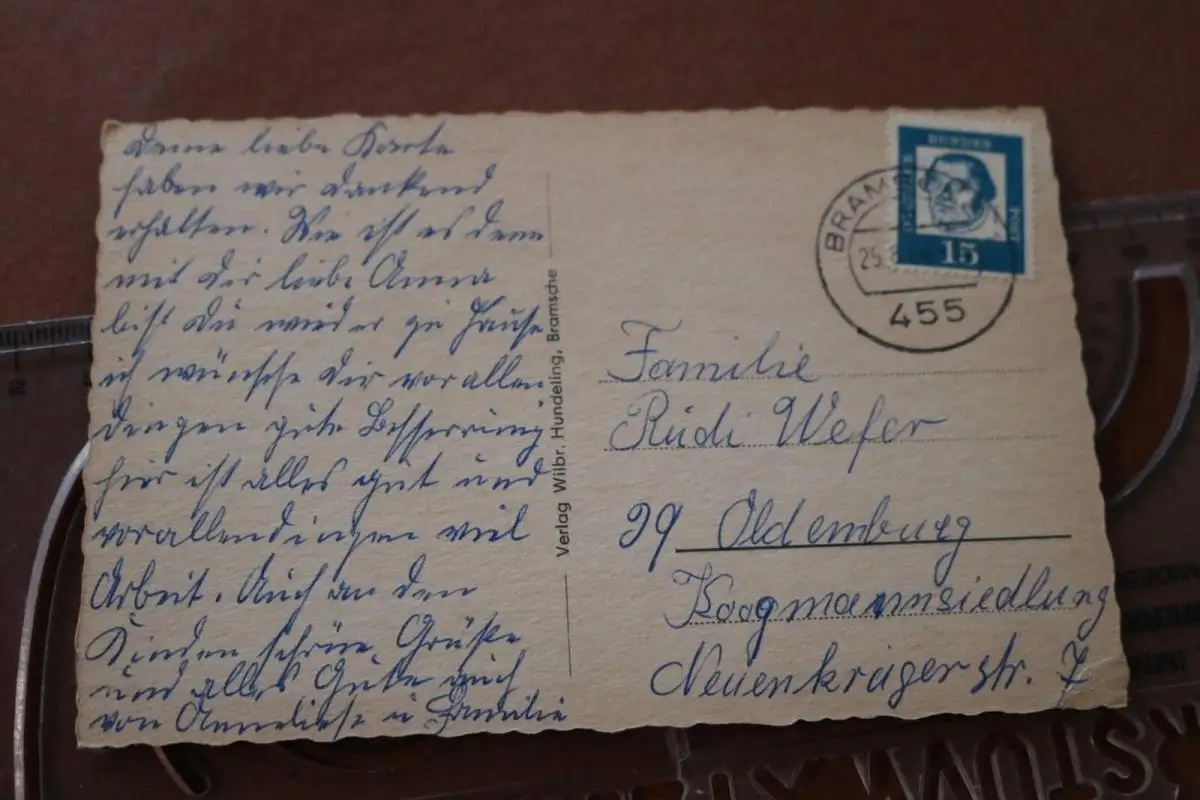 Deine liebe Karte
haben wir dankend
erhalten. Wie ist es denn
mit Dir liebe Anna
bist Du wieder zu Hause
ich wünsche Dir vor allen
Dingen gute Besserung
hier ist alles gut und
vorallendingen viel
Arbeit. Auch an den
Kinden schöne Grüße
und alles Gute auch
von Anneliese u Familie
Verlag Wilbr. Hundeling, Bramsche
15
455
Familie
Rudi Wefer
29 Oldemburg
Koogmannsiedlung
Neuenkrugerstr. 7